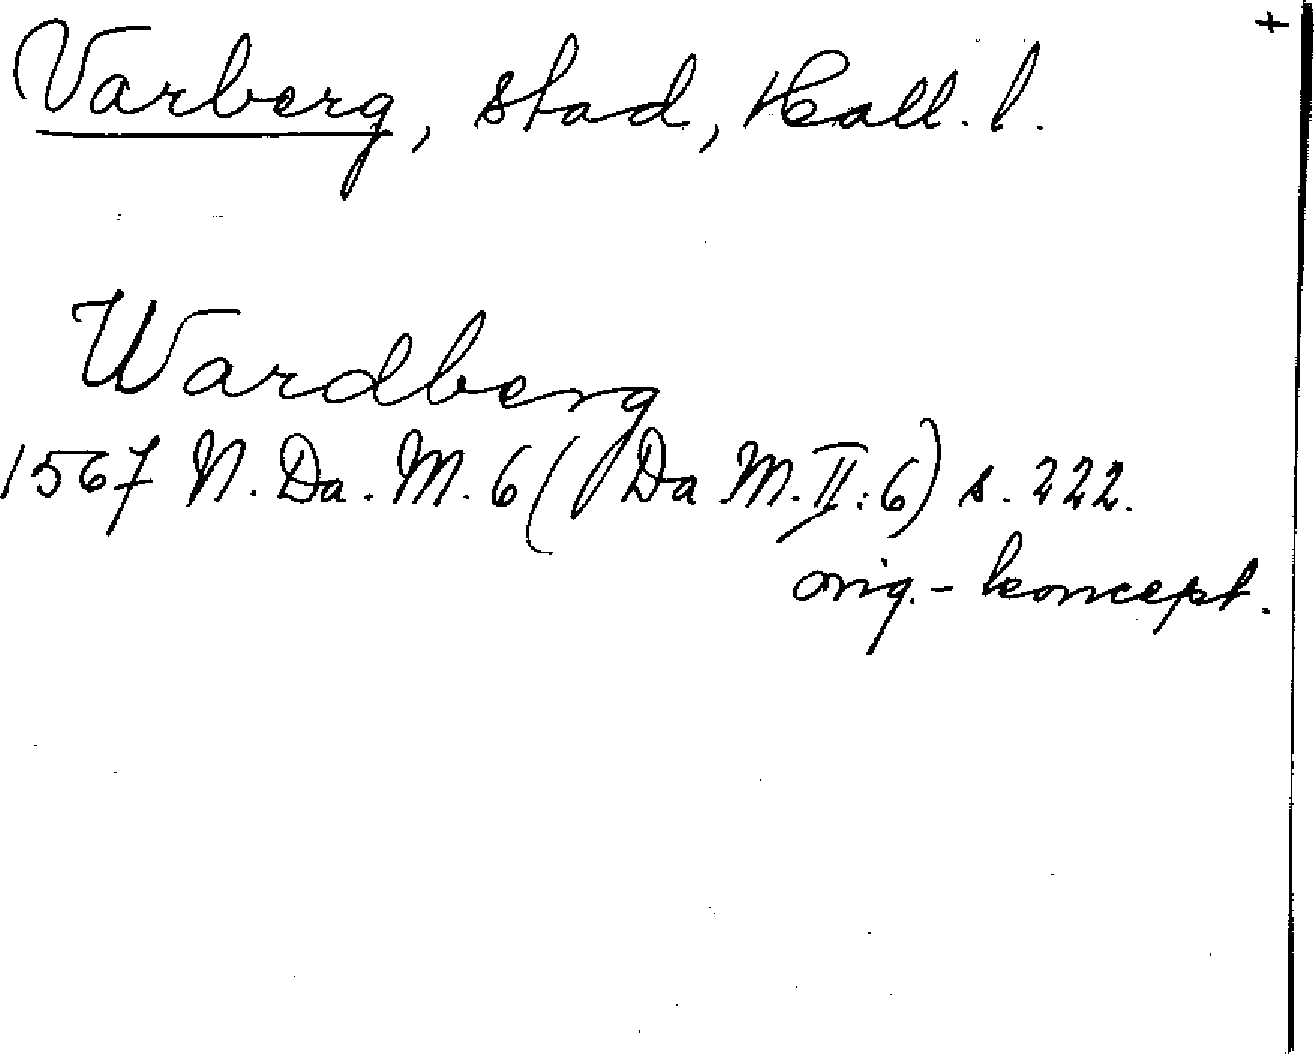 +
Varberg, stad, Hall. l.
Wardberg
1567 N. Da. M. 6 (Da M. II: 6) s. 222.
orig.-koncept.